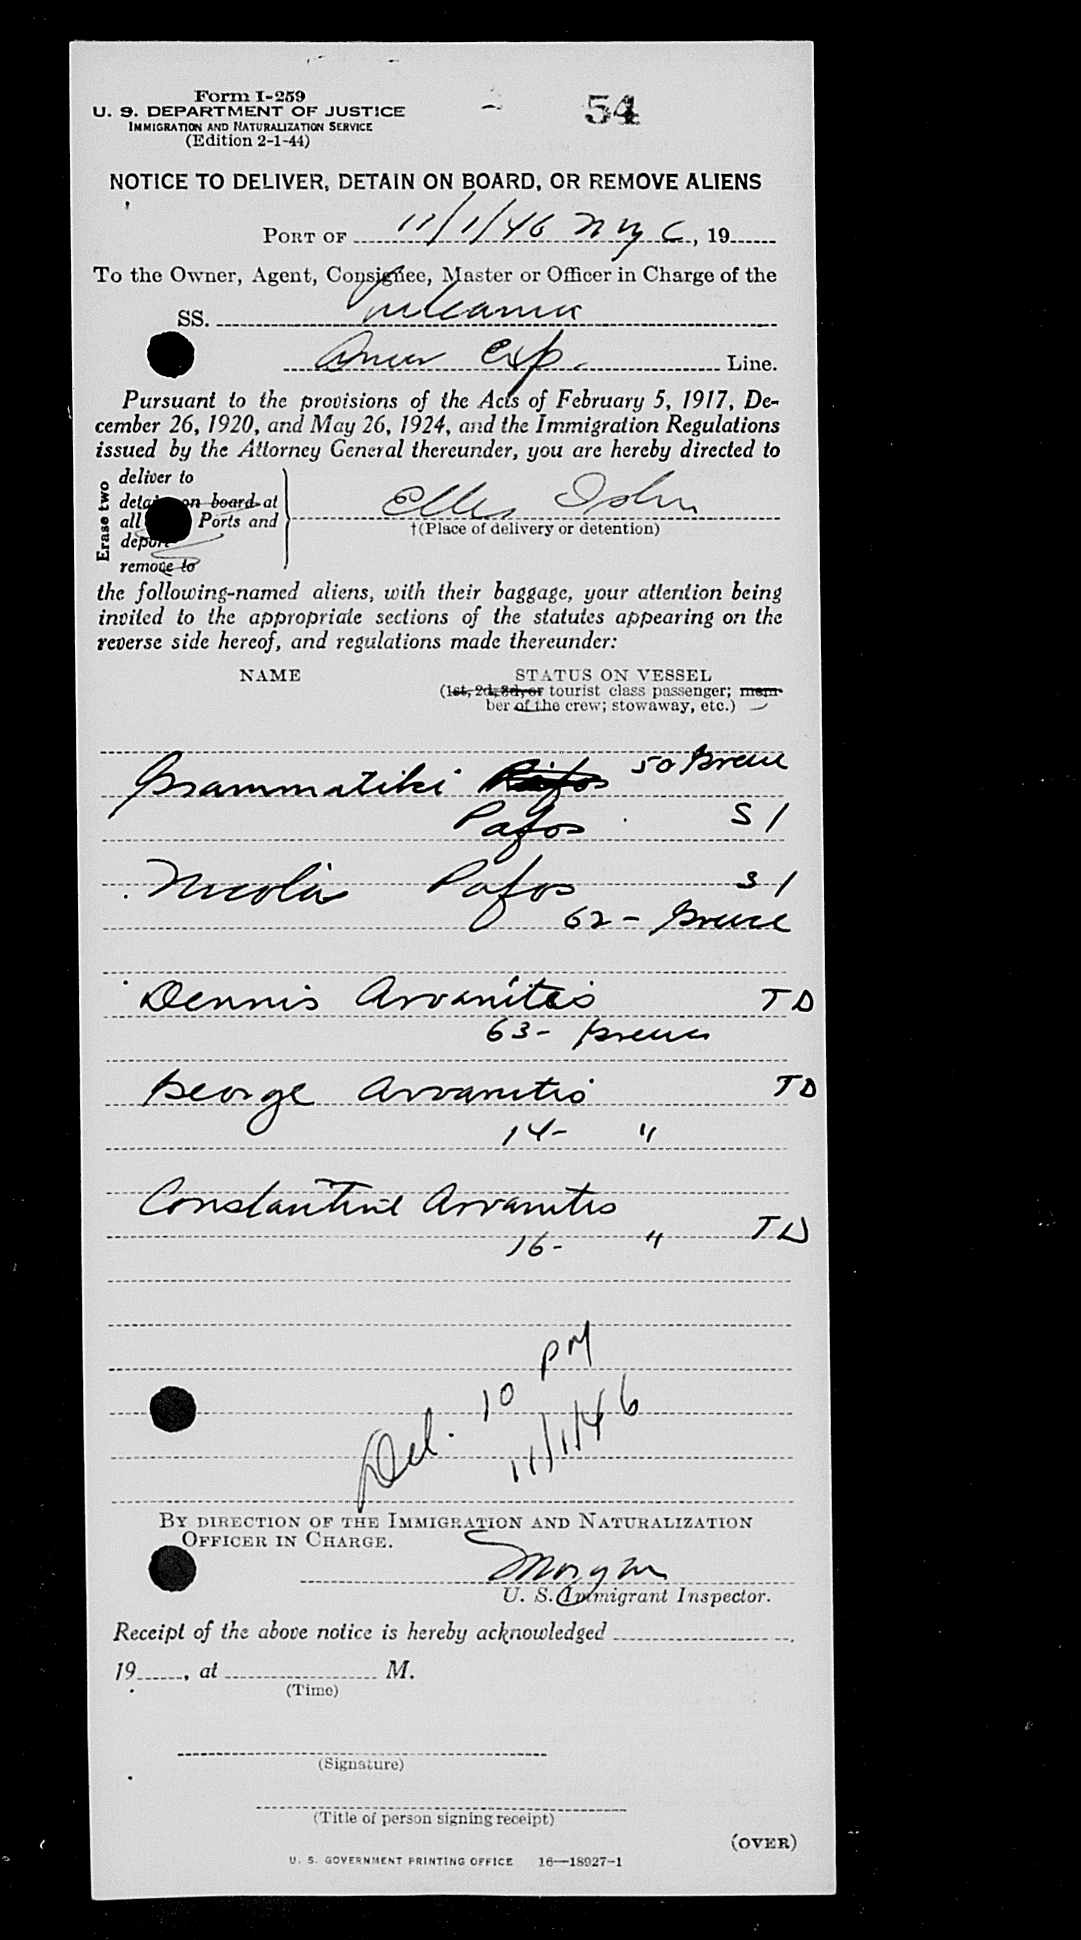 Form I-259
U. S. DEPARTMENT OF JUSTICE
IMMIGRATION AND NATURALIZATION SERVICE
(Edition 2-1-44)
54
NOTICE TO DELIVER, DETAIN ON BOARD, OR REMOVE ALIENS
PORT OF 11/1/46 NYC, 19
To the Owner, Agent, Consignee, Master or Officer in Charge of the
SS. Vulcania
Amer Exp. Line.
Pursuant to the provisions of the Acts of February 5, 1917, De-
cember 26, 1920, and May 26, 1924, and the Immigration Regulations
issued by the Attorney General thereunder, you are hereby directed to
Erase two
deliver to
detain on board at
all Ports and
deport
remove to
Ellis Isln
†(Place of delivery or detention)
the following-named aliens, with their baggage, your attention being
invited to the appropriate sections of the statutes appearing on the
reverse side hereof, and regulations made thereunder:
NAME STATUS ON VESSEL
(1st, 2d, 3d, or tourist class passenger; mem-
ber of the crew; stowaway, etc.)
Grammatiki 50 Greece
Pafos S 1
Nicola Pafos S 1
62 - Greece
Dennis Arvanitis TD
63 - Greece
George Arvanitis TD
14 - "
Constantine Arvanitis
16 - " TD
Del. 10 PM
11/1/46
BY DIRECTION OF THE IMMIGRATION AND NATURALIZATION
OFFICER IN CHARGE.
Morgan
U. S. Immigrant Inspector.
Receipt of the above notice is hereby acknowledged
19, at M.
(Time)
(Signature)
(Title of person signing receipt)
(OVER)
U. S. GOVERNMENT PRINTING OFFICE 16—18927-1